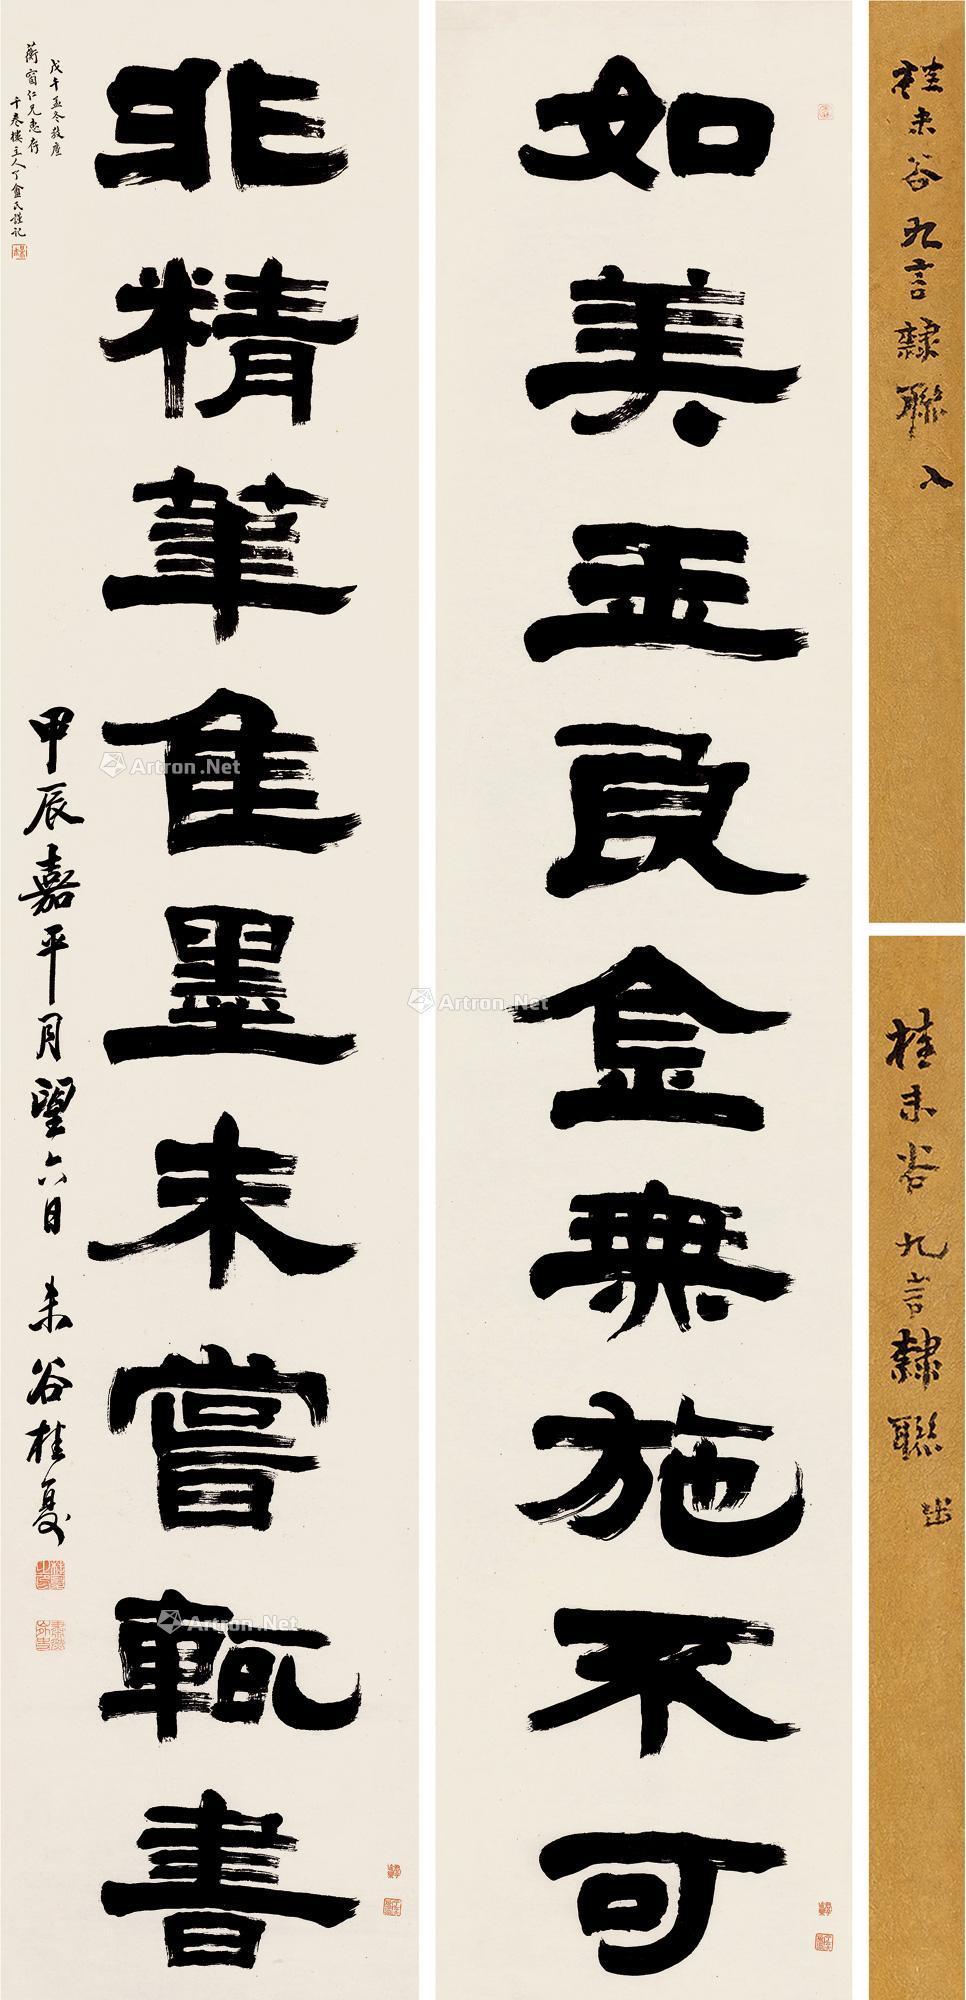 桂未谷九言隸聯 入
桂未谷九言隸聯 出
如美玉良金無施不可
非精筆佳墨未嘗輒書
甲辰嘉平月望六日 未谷桂馥
戊午孟冬
蘅窗仁兄惠存
千卷樓主人丁
氏謹記
Artron.Net
Artron.Net
Artron.Net